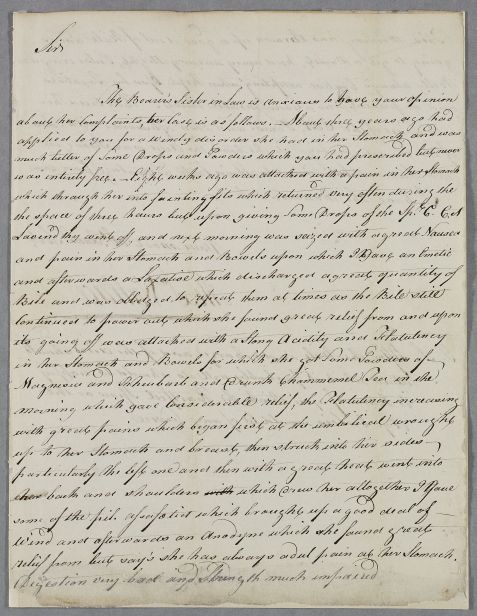 Sir
The Bearer's Sister in Law is anxious to have your opinion
about her Complaints, her Case is as follows. About three years ago had
applied to you for a windy disorder she had in her Stomach and was
much better of some Drops and Powders which you had prescrived but never
was intirely free. Eight weeks ago was attacked with a pain in her Stomach
which through her into fainting fits which returned very often during the
the space of three hours but upon giving some Drops of the Spt. C. C. et
Lavend they went off, and next morning was seized with a great Nausea
and pain in her Stomach and Bowels upon which I Gave an Emetic
and afterwards a Laxative which discharged a great quantity of
Bile and was obledged to repeat them at times as the Bile still
continued to power out which she found great relief from and upon
its going off was attacked with a Stong Acidity and Flatulency
in her Stomach and Bowels for which she got some Powders of
Magnesia and Rheubarb and drunk Chammemel Tea in the
morning which gave Considerable relief, the Flatulency increasing
with great pains which began first at the umbilical wrought
up to her Stomach and breast, then struck into her sides
particularly the left one and then with a great heat went into
back and shoulders which drew her altogether I Gave
some of the pil. assafoetict which brought up a good deal of
Wind and afterwards an Anodyne which she found great
relief from but say's she has always a dul pain at her Stomach.
Digestion very bad and Strength much impaired